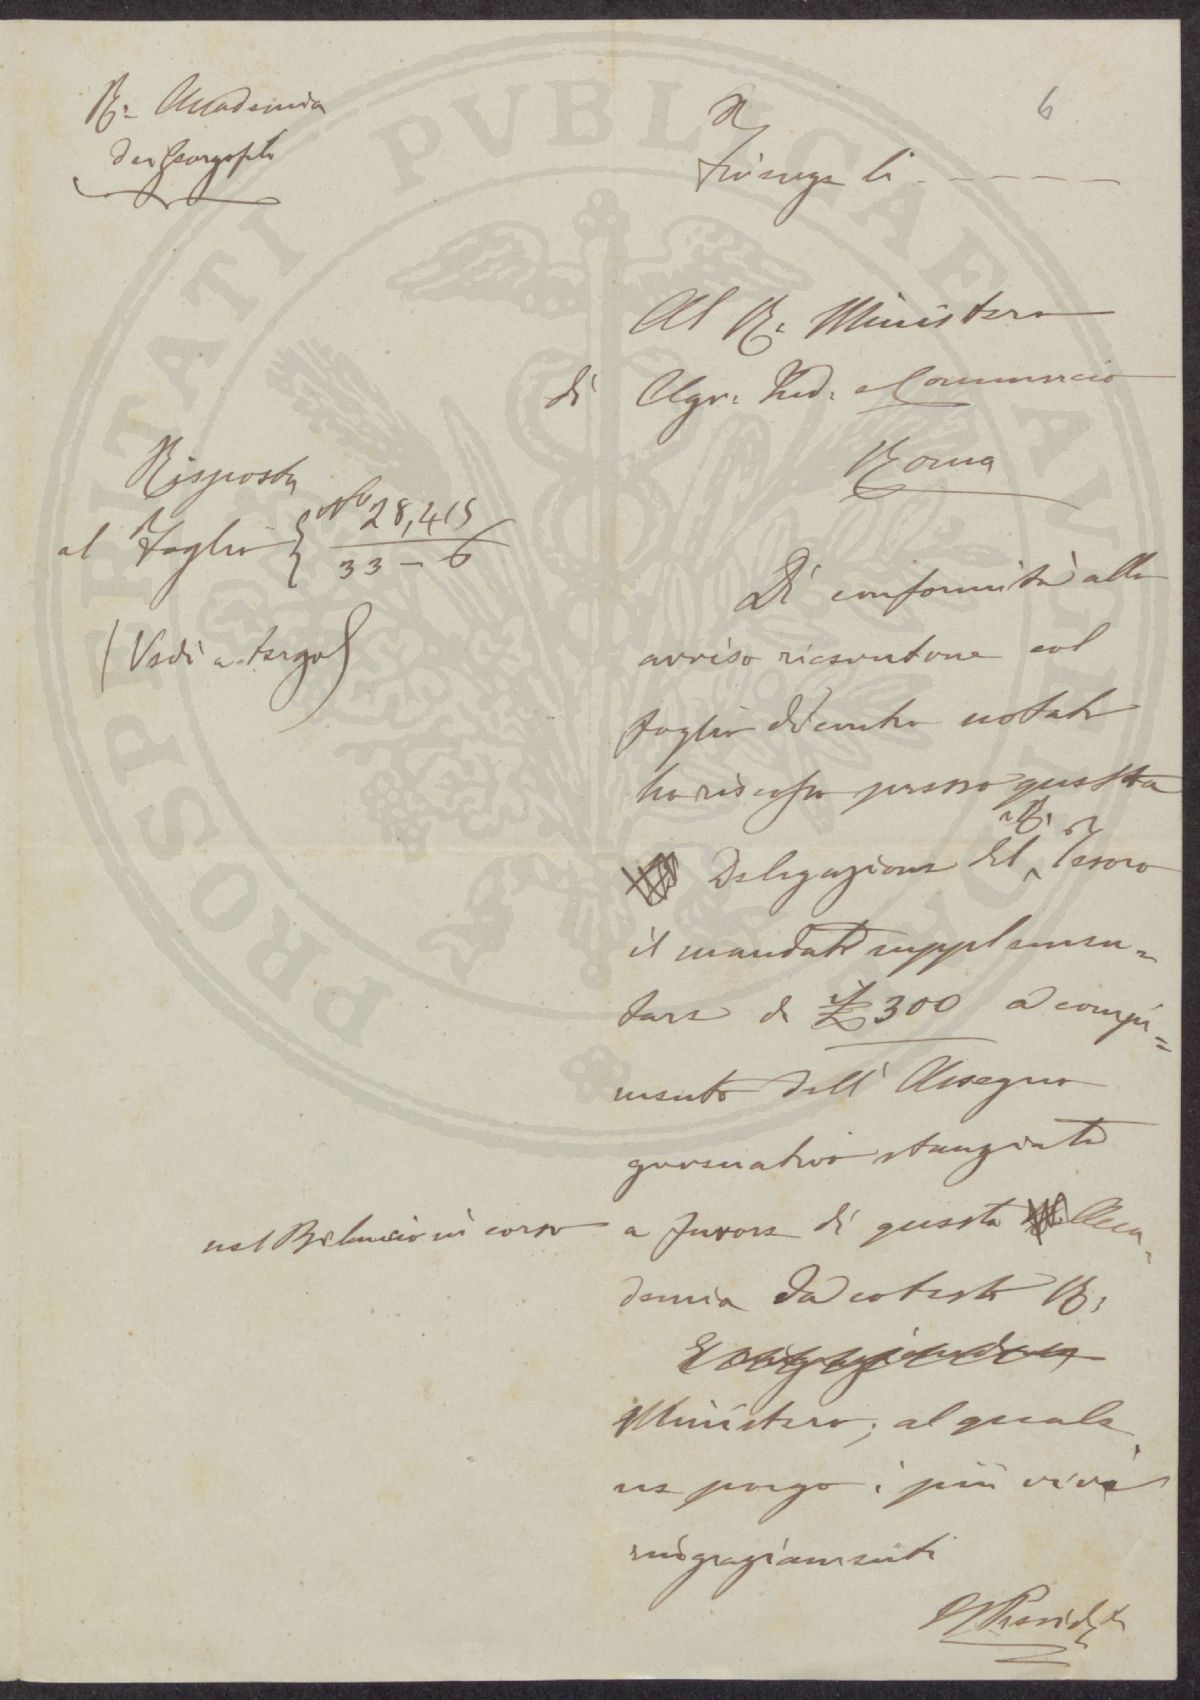 R. Accademia
dei Georgofili
6
N
Firenze li
Al R. Ministero
di Agr. Ind. e Commercio
Roma
Risposta
al Foglio { No 28,415
33 - 6
(Vedi a tergo)
Di conformità allo
avviso ricevutone col
foglio di contro notato
ho riscosso presso questa
Delegazione del R. Tesoro
il mandato supplemen=
tare di £ 300 a compi=
mento dell' Assegno
governativo stanziato
nel Bilancio in corso a favore di questa Acca=
demia da cotesto R.
Ministero; al quale
ne porgo i più vivi
ringraziamenti
Il Presidte
PROSPERITATI PVBLICAE AVGENDAE